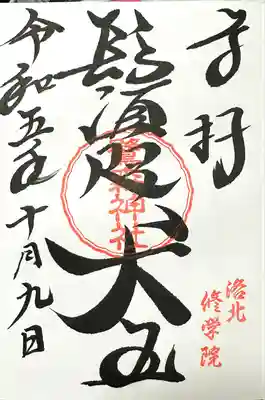 奉拝
洛北
修学院
鬚咫天王
鷺森神社
令和五年十月九日